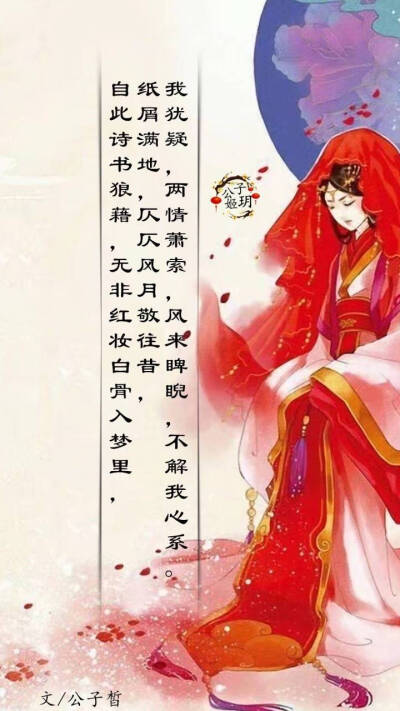 自此诗书狼藉，无非红妆白骨入梦里，
纸屑满地，仄仄风月敬往昔，
我犹疑，两情萧索，风来睥睨，不解我心系。
公子
姬玥
文/公子皙